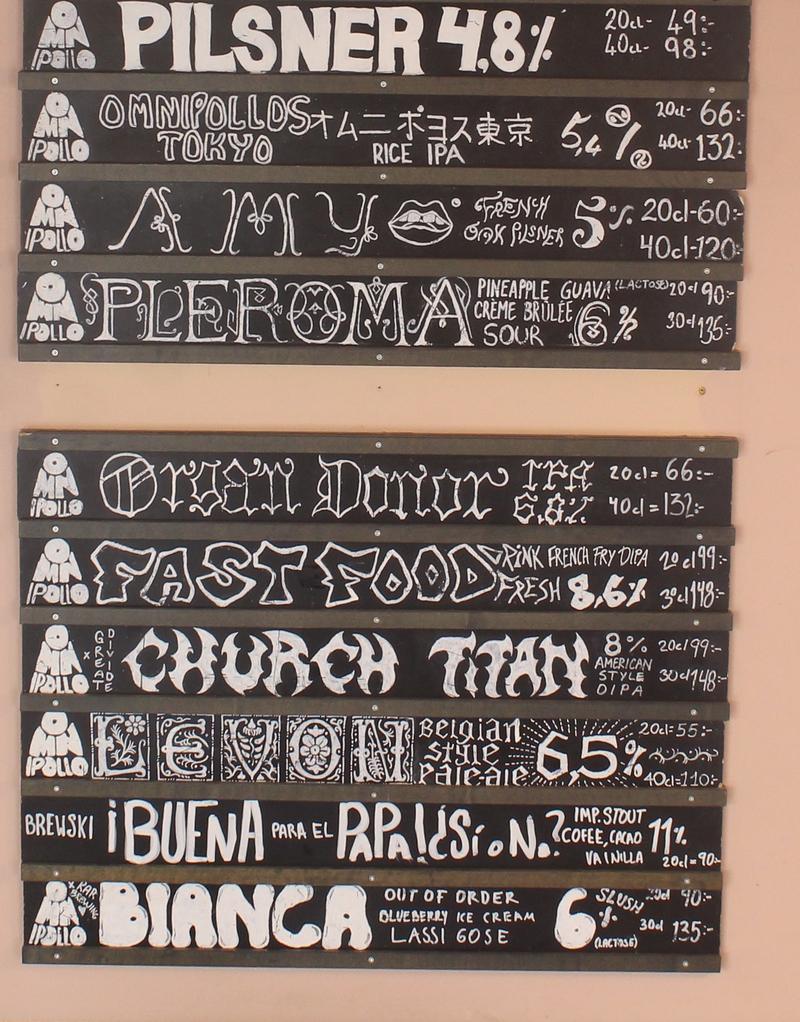 OMNIPOLLO PILSNER 4,8% 20cl- 49:-
40cl- 98:-
OMNIPOLLO OMNIPOLLOS オムニポヨス東京 5,4% 20cl- 66:-
TOKYO RICE IPA 40cl- 132:-
OMNIPOLLO AMY FRENCH 5% 20cl-60:-
OAK PILSNER 40cl-120:-
OMNIPOLLO PLEROMA PINEAPPLE GUAVA (LACTOSE) 20cl 90:-
CRÈME BRÛLÉE 6%
SOUR 30cl 135:-
OMNIPOLLO Organ Donor IPA 20cl = 66:-
6,8% 40cl = 132:-
OMNIPOLLO FAST FOOD PINK FRENCH FRY DIPA 20cl 99:-
FRESH 8,6% 30cl 148:-
OMNIPOLLO x GREAT DIVIDE CHURCH TITAN 8% 20cl 99:-
AMERICAN
STYLE 30cl 148:-
DIPA
OMNIPOLLO LEVON Belgian 20cl=55:-
style 6,5%
Pale ale 40cl=110:-
BREWSKI ¡BUENA PARA EL PAPALUSióN? IMP. STOUT
COFEE, CACAO 11%
VAINILLA 20cl=90:-
OMNIPOLLO x KAR BREWING BIANCA OUT OF ORDER 6% SLUSH 20cl 90:-
BLUEBERRY ICE CREAM 30cl 135:-
LASSI GOSE (LACTOSE)